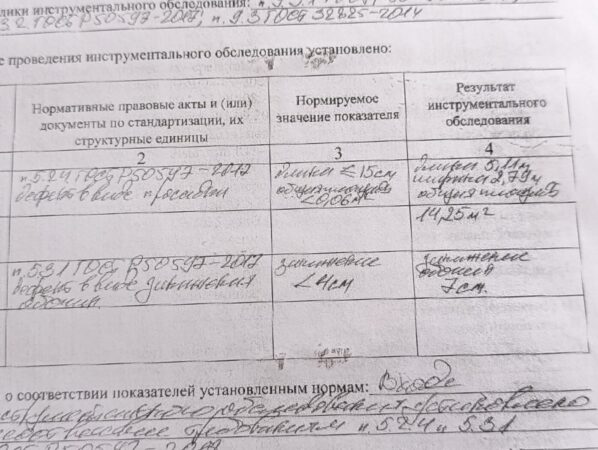 лики инструментального обследования: п. 9.1 ГОСТ
3.2. ГОСТ Р 50597-2017, п. 9.3 ГОСТ 32825-2014
е проведения инструментального обследования установлено:
Нормативные правовые акты и (или) документы по стандартизации, их структурные единицы
Нормируемое значение показателя
Результат инструментального обследования
2
3
4
п. 5.2.4 ГОСТ Р 50597-2017
дефект в виде просадки
длина ≤ 15 см
общая площадь
<0,06 м²
длина 5,11 м
ширина 2,79 м
общая площадь
14,25 м²
п. 5.3.1 ГОСТ Р 50597-2017
дефект в виде занижения
обочины
занижение
< 4 см
занижение
обочины
7 см.
о соответствии показателей установленным нормам: В ходе
инструментального обследования установлено
требованиям п 5.2.4 и 5.3.1
ГОСТ Р 50597-2017